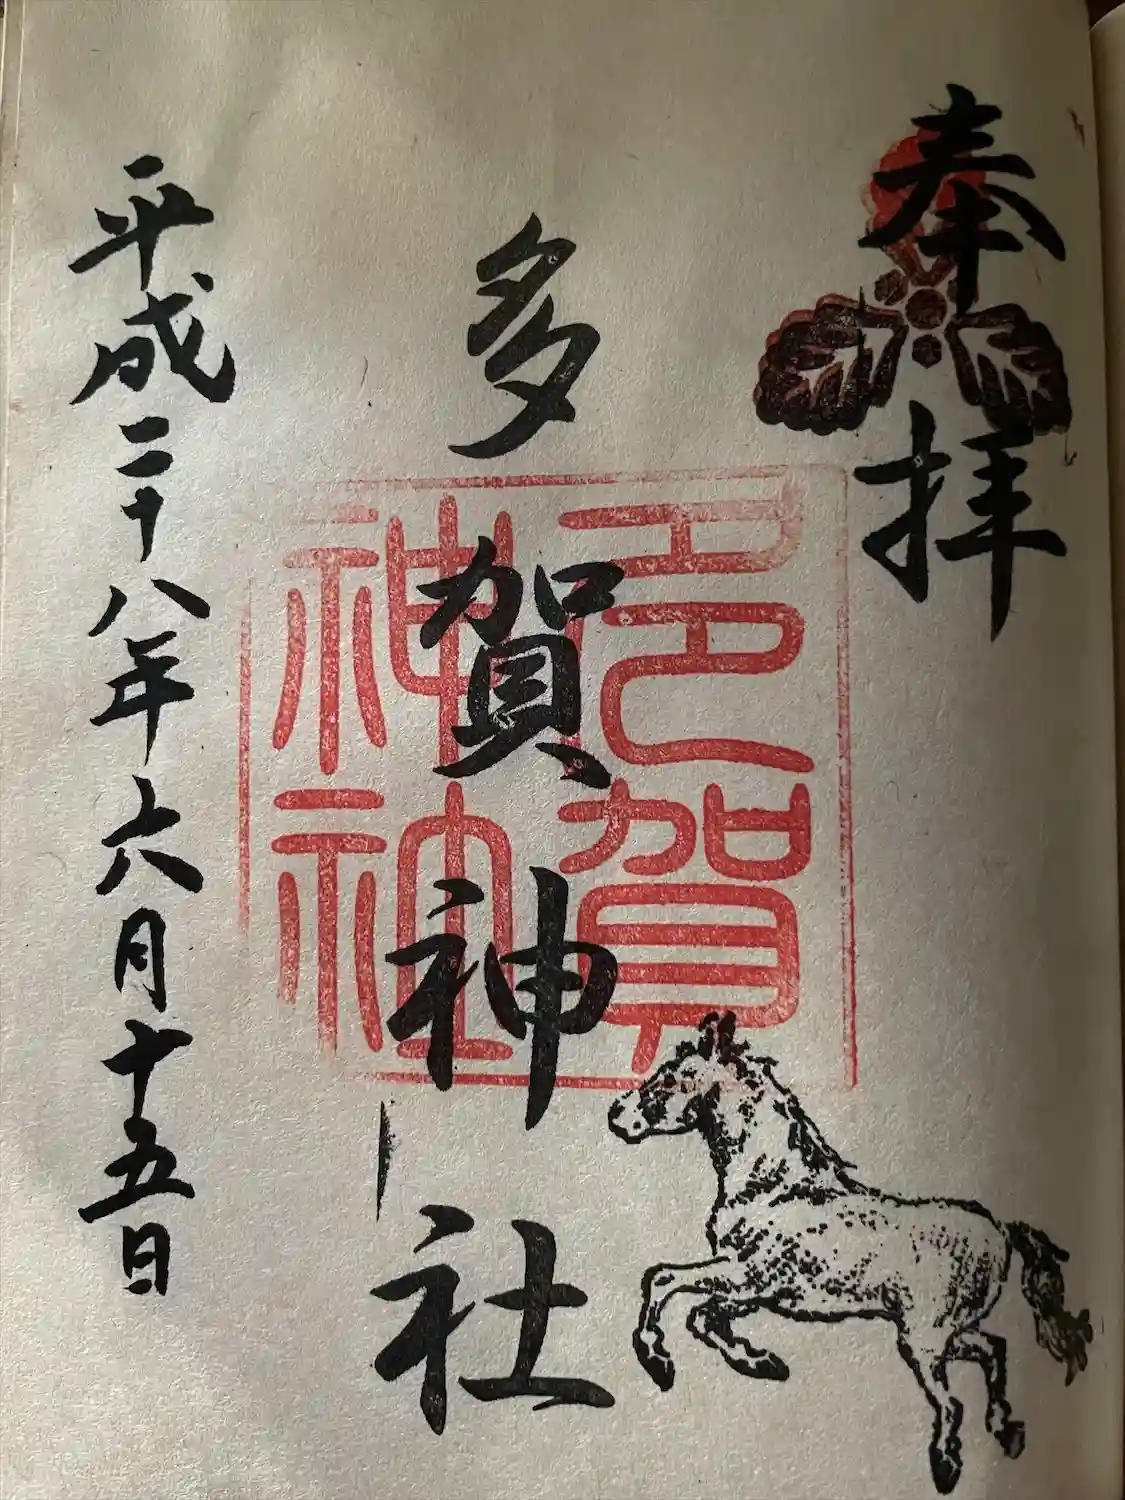 奉拝
多賀神社
多賀神社
平成二十八年六月十五日